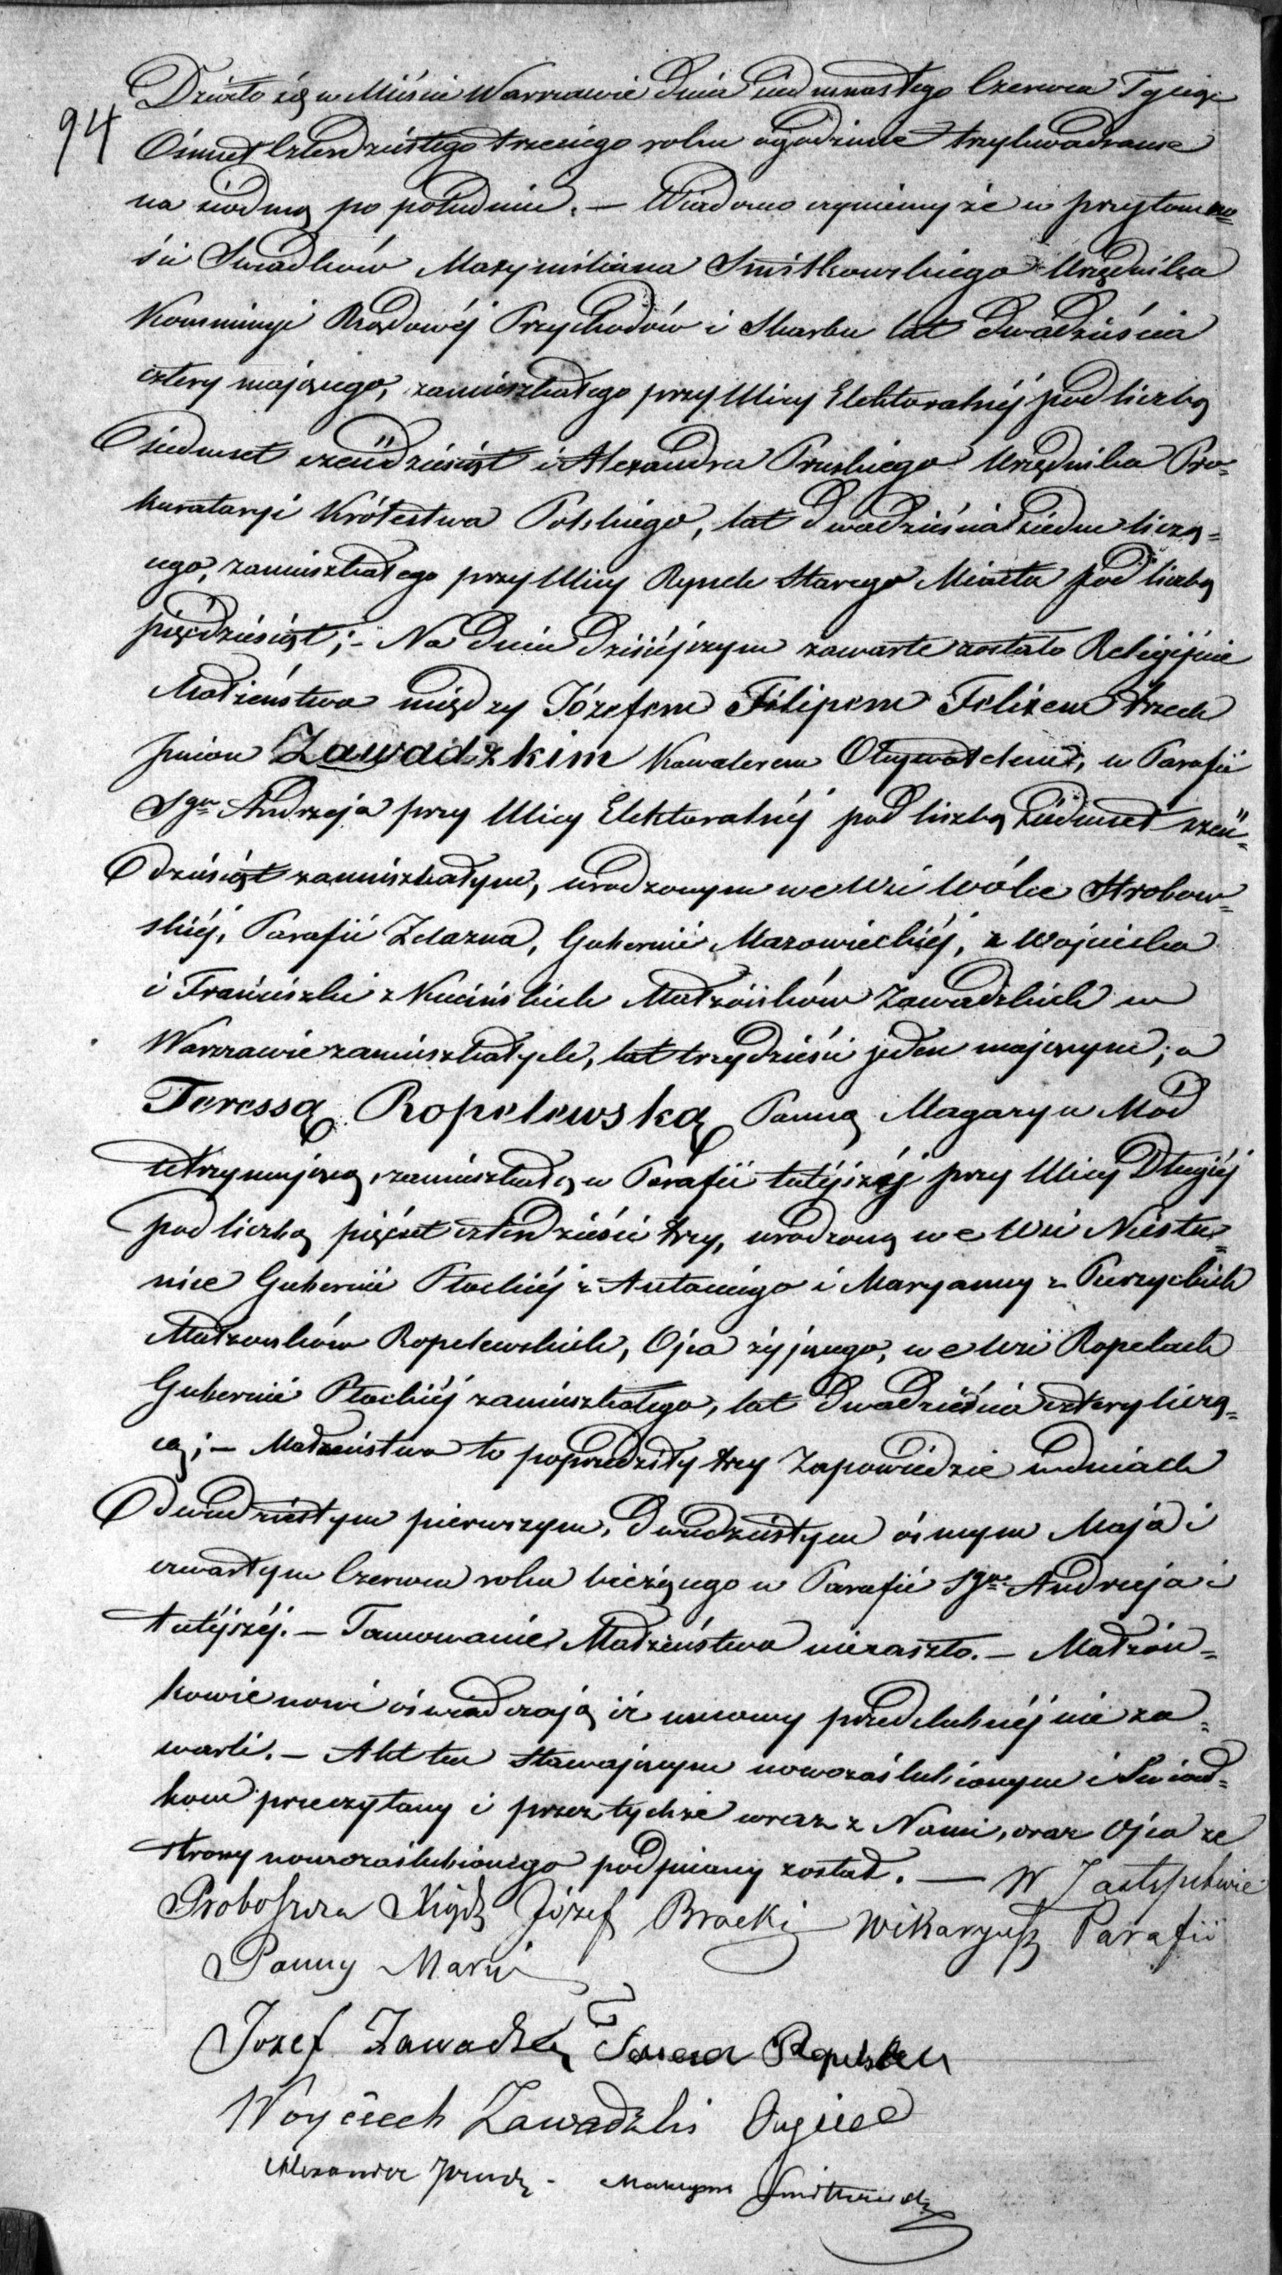 94
Działo się w Mieście Warszawie dnia siedmnastego Czerwca Tysiąc
Ośmset Czterdziestego trzeciego roku o godzinie trzy kwadranse
na siódmą po południu. — Wiadomo czynimy że w przytomno-
ści Świadków Maxymiliana Smitkowskiego Urzędnika
Kommissyi Rządowéj Przychodów i Skarbu lat dwadzieścia
cztery mającego, zamieszkałego przy Ulicy Elektoralnéj pod liczbą
siedmset sześćdziesiąt i Alexandra Pruskiego Urzędnika Pro-
kuratoryi Królestwa Polskiego, lat dwadzieścia siedm liczą-
cego, zamieszkałego przy Ulicy Rynek Starego Miasta pod liczbą
pięćdziesiąt; – Na dniu dzisiéjszym zawarte zostało Religijnie
Małżeństwo między Józefem Filipem Felixem trzech
Imion Zawadzkim Kawalerem Obywatelem, w Parafii
Sgo Andrzeja przy Ulicy Elektoralnéj pod liczbą siedmset sześć-
dziesiąt zamieszkałym, urodzonym we Wsi Wólce Strobow-
skiéj, Parafii Żelazna, Gubernii Mazowieckiéj, z Wojciecha
i Franciszki z Kucińskich Małżonków Zawadzkich w
Warszawie zamieszkałych, lat trzydzieści jeden mającym; a
Teressą Ropelewską Panną Magazyn Mód
utrzymującą, zamieszkałą w Parafii tutéjszéj przy Ulicy Długiéj
pod liczbą pięćset czterdzieści trzy, urodzoną we Wsi
Gubernii Płockiéj z Antoniego i Maryanny z
Małżonków Ropelewskich, Ojca żyjącego, we Wsi Ropelach
Gubernii Płockiéj zamieszkałego, lat dwadzieścia cztery liczą-
cą; – Małżeństwo to poprzedziły trzy Zapowiedzie w dniach
dwudziestym pierwszym, dwudziestym ósmym Maja i
czwartym Czerwca roku bieżącego w Parafii Sgo Andrzeja i
tutéjszéj. – Tamowanie Małżeństwa nie zaszło. – Małżon-
kowie nowi oświadczają iż umowy przedślubnéj nie za-
warli. – Akt ten stawającym nowozaślubionym i Świad-
kom przeczytany i przez tychże wraz z Nami, oraz Ojca ze
strony nowozaślubionego podpisany został. — W Zastępstwie
Proboszcza Xiądz Józef Bracki Wikaryusz Parafii
Panny Marii
Jozef Zawadzki Teresa Ropelewska
Woyciech Zawadzki Oyciec
Alexander Pruski - Maxym Smitkowski